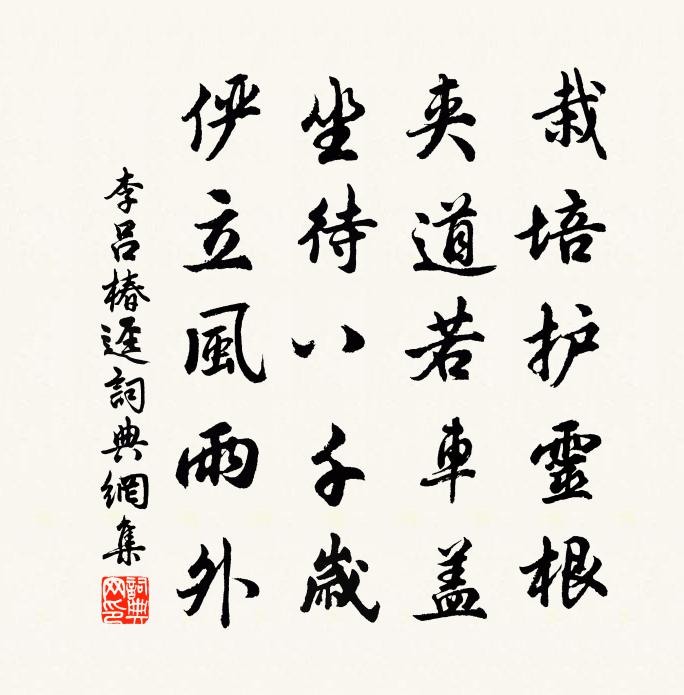 栽培护靈根
夾道若車盖
坐待八千歲
俨立風雨外
李呂椿迳詞典網集
詞典网印